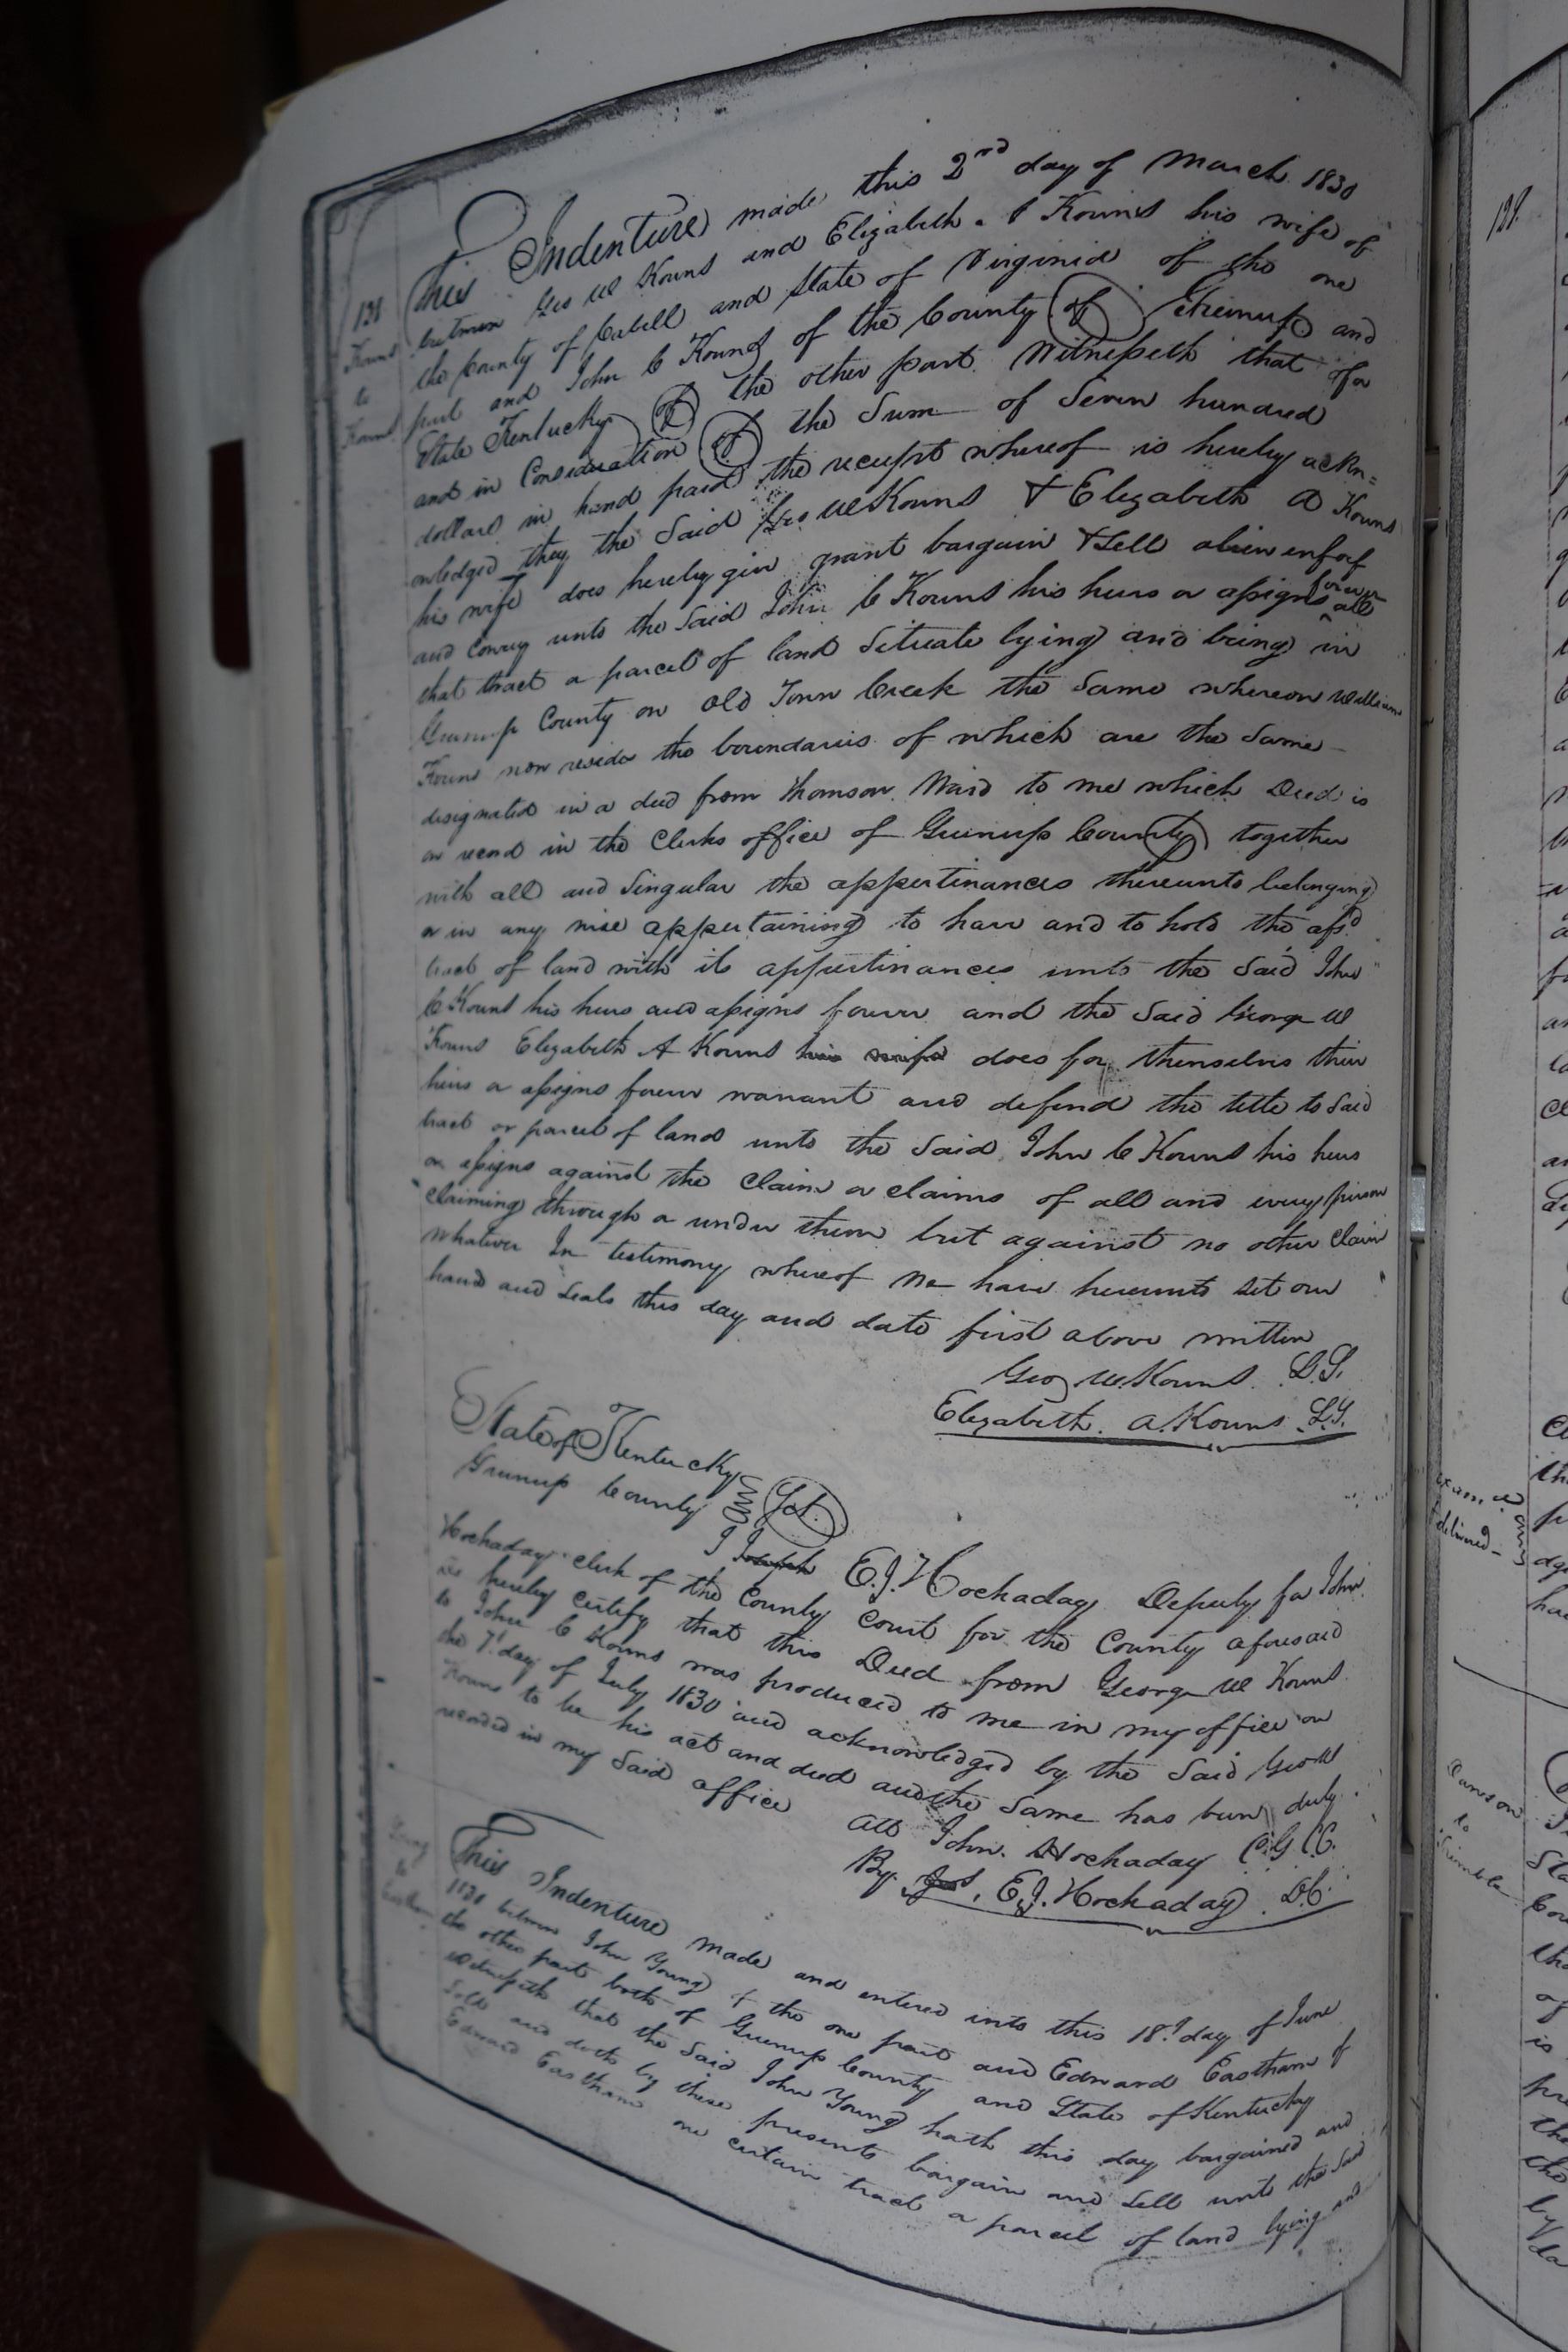 131
Kouns
to
Kouns
This Indenture made this 2nd day of March 1830
between Geo W Kouns and Elizabeth A Kouns his wife of
the County of Cabell and State of Virginia of the one
part and John C Kouns of the County of Greenup and
State Kentucky of the other part Witnesseth that for
and in Consideration of the Sum of Seven hundred
dollars in hand paid the receipt whereof is hereby ackn=
owledged they the Said Geo W Kouns & Elizabeth A Kouns
his wife does hereby give grant bargain & Sell alien enfeof
and Convey unto the Said John C Kouns his heirs or assigns forever all
that tract or parcel of land Situate lying and being in
Greenup County on Old Town Creek the Same whereon William
Kouns now resides the boundaries of which are the Same
designated in a deed from Thomson Ward to me which Deed is
on record in the Clerks office of Greenup County together
with all and Singular the appertinances thereunto belonging
or in any wise appertaining to have and to hold the afsd
tract of land with its appertinances unto the Said John
C Kouns his heirs and assigns forever and the Said George W
Kouns Elizabeth A Kouns his wife does for themselves their
heirs or assigns forever warrant and defend the title to Said
tract or parcel of land unto the Said John C Kouns his heirs
or assigns against the Claim or claims of all and every person
Claiming through or under them but against no other Claim
Whatever In testimony whereof We have hereunto Set our
hand and Seals this day and date first above written
Geo W. Kouns L.S.
Elizabeth. A. Kouns L.S.
State of Kentucky
Greenup County Sct.
I Joseph E.J. Hockaday Deputy for John
Hockaday clerk of the County Court for the County aforesaid
do hereby certify that this Deed from George W Kouns
to John C Kouns was produced to me in my office on
the 7t day of July 1830 and acknowledged by the Said Geo W
Kouns to be his act and deed and the Same has been duly
recorded in my Said office
Att John. Hockaday C.G.C.C.
By Jos, E.J. Hockaday D.C.
Young
to
Eastham
This Indenture made and entered into this 18t day of June
1830 between John Young of the one part and Edward Eastham of
the other part both of Greenup County and State of Kentucky
Witnesseth that the Said John Young hath this day bargained and
Sold and doth by these presents bargain and Sell unto the Said
Edward Eastham one certain tract or parcel of land lying and
exam d and
delivered
to